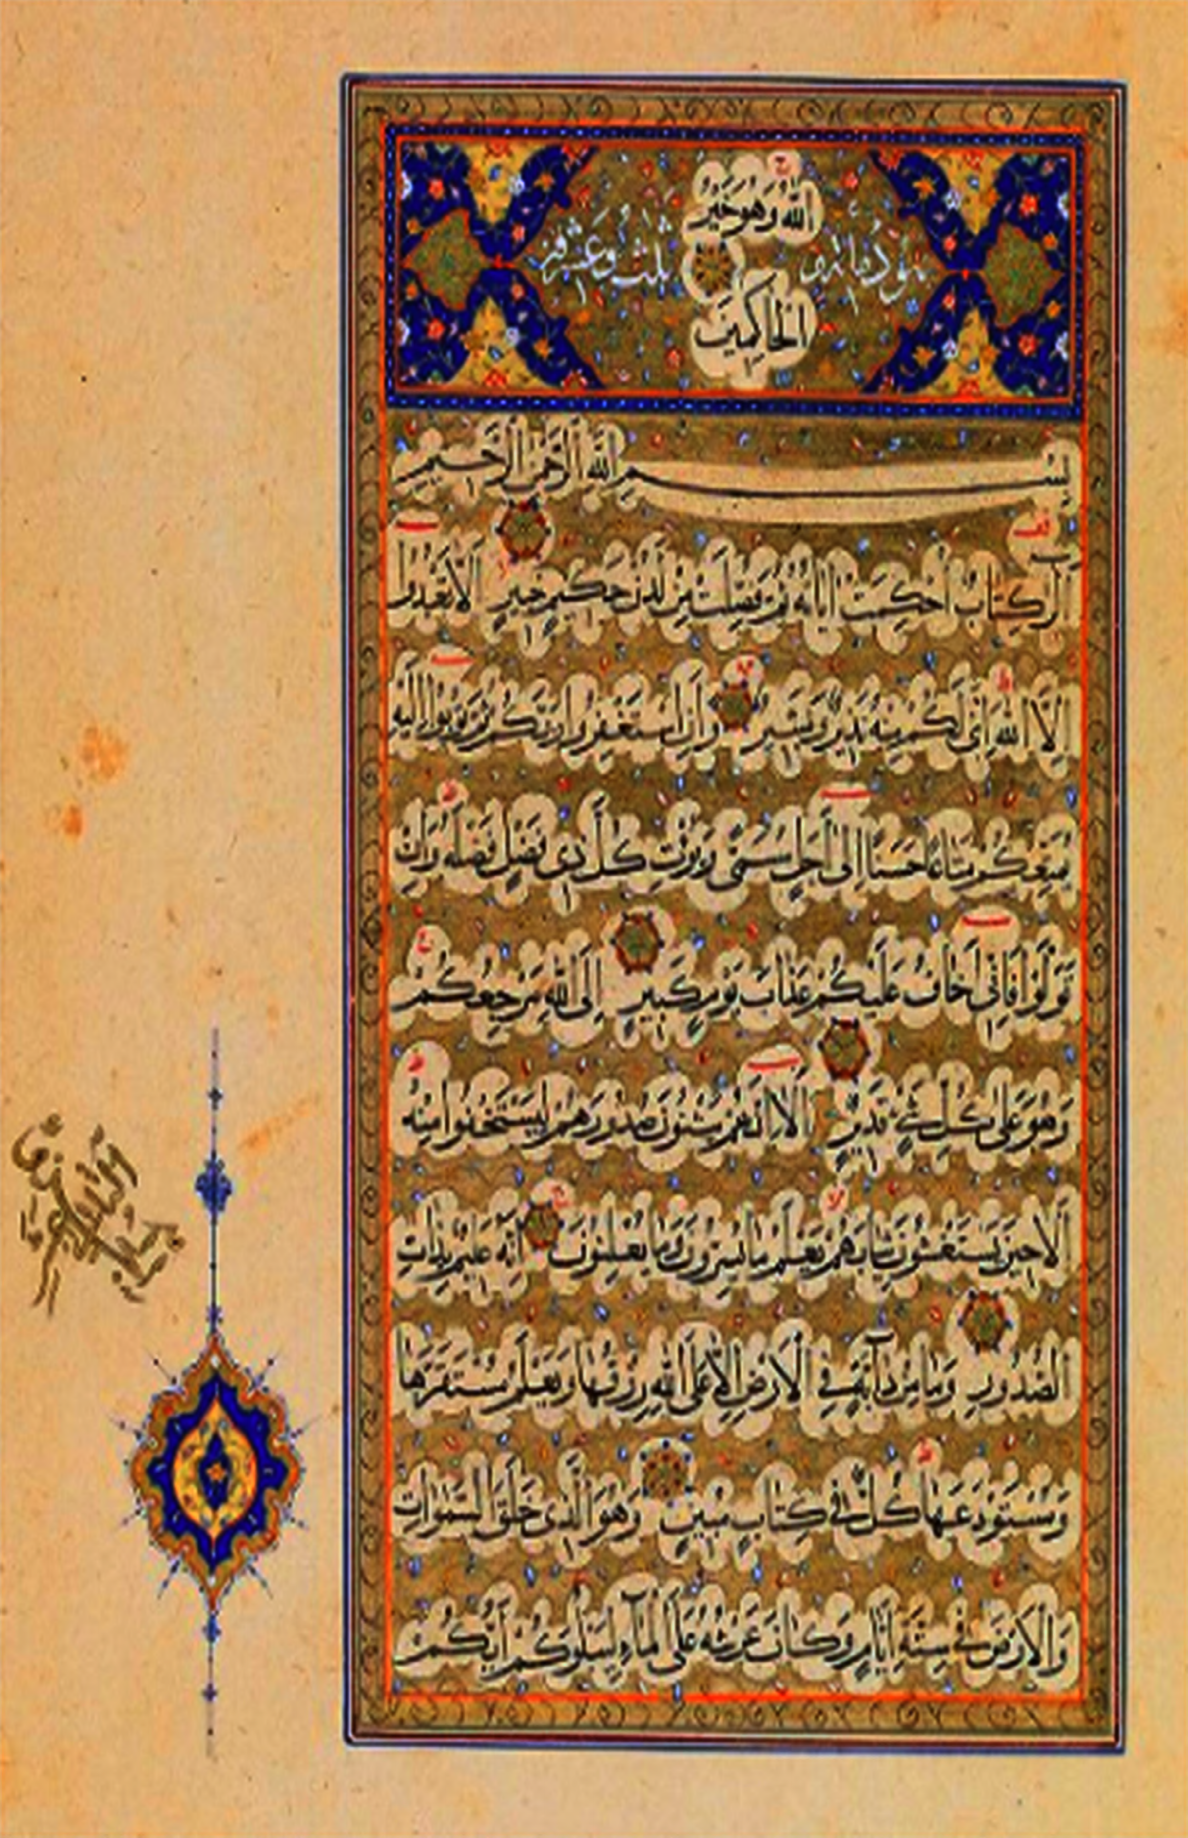 الله وهو خير
سورة مائة وثلث وعشرون
الحاكمين
بسم الله الرحمن الرحيم
الر كتاب أحكمت آياته ثم فصلت من لدن حكيم خبير ألا تعبدوا
إلا الله إنني لكم منه نذير وبشير وأن استغفروا ربكم ثم توبوا إليه
يمتعكم متاعا حسنا إلى أجل مسمى ويؤت كل ذي فضل فضله وإن
تولوا فإني أخاف عليكم عذاب يوم كبير إلى الله مرجعكم
وهو على كل شيء قدير ألا إنهم يثنون صدورهم ليستخفوا منه
ألا حين يستغشون ثيابهم يعلم ما يسرون وما يعلنون إنه عليم بذات
الصدور وما من دابة في الأرض إلا على الله رزقها ويعلم مستقرها
ومستودعها كل في كتاب مبين وهو الذي خلق السموات
والأرض في ستة أيام وكان عرشه على الماء ليبلوكم أيكم